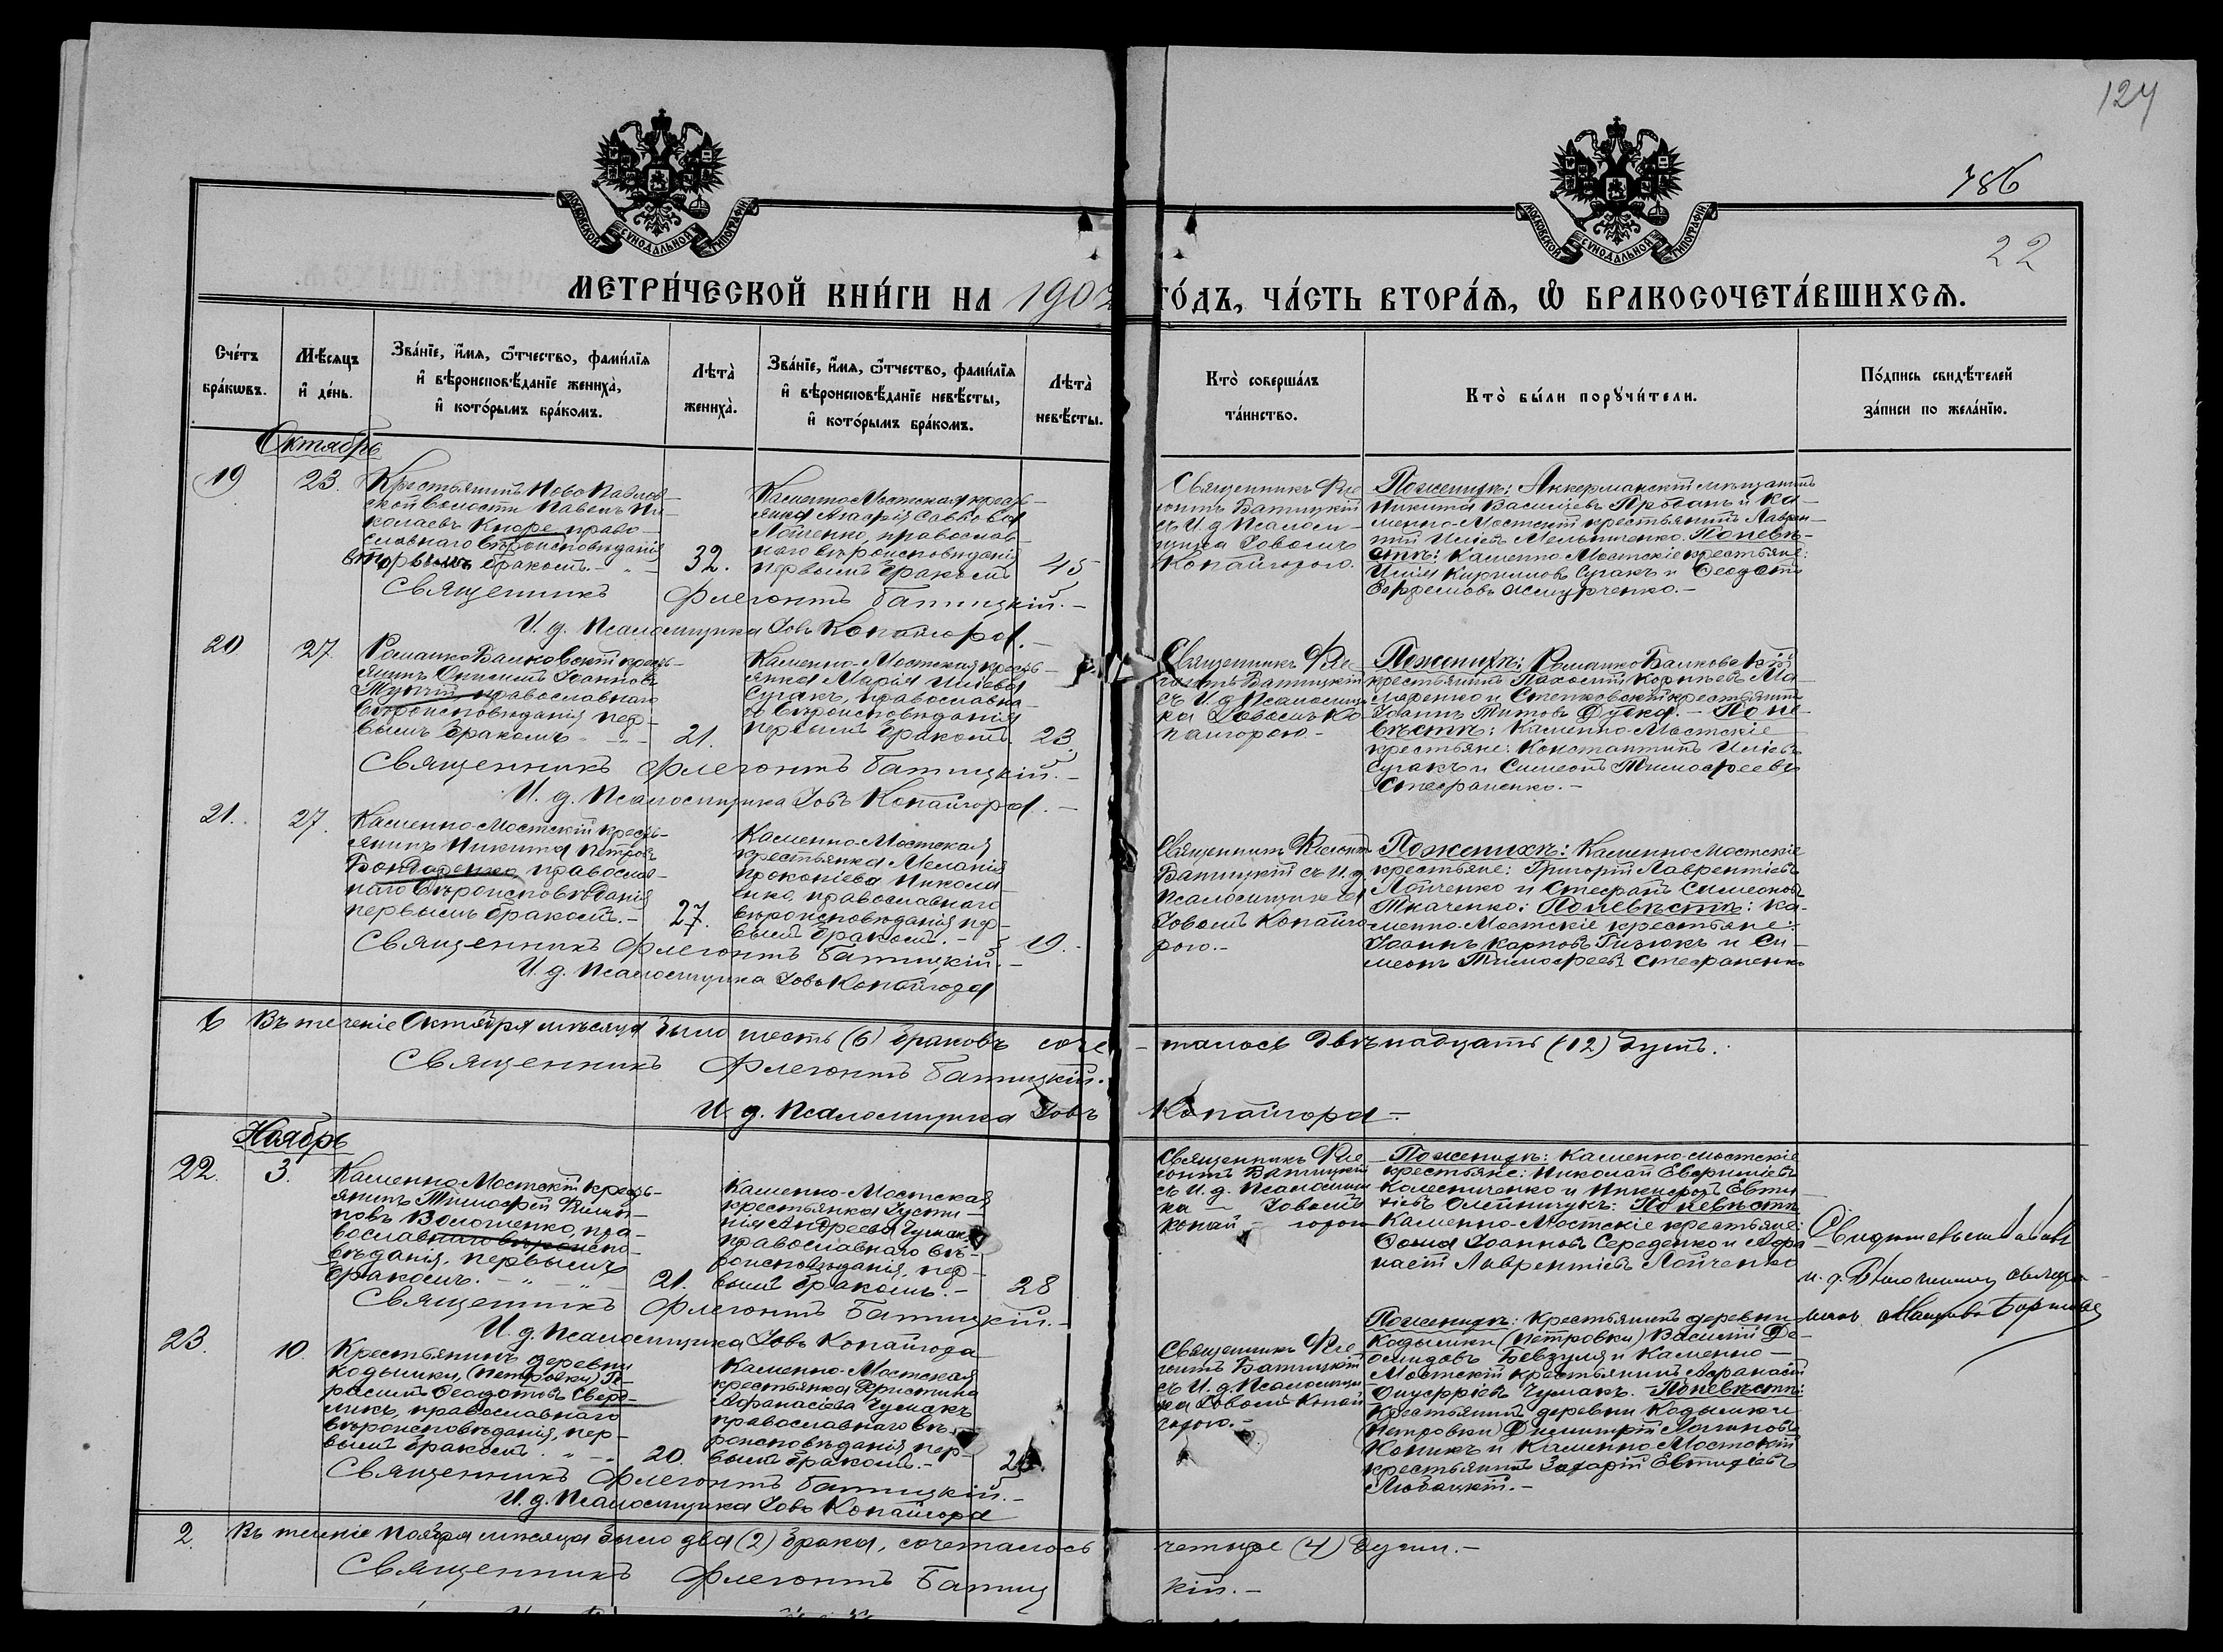 124
786
22
МОСКОВСКОЙ СѴНОДАЛЬНОЙ ТИПОГРАФІИ
МОСКОВСКОЙ СѴНОДАЛЬНОЙ ТИПОГРАФІИ
МЕТРИ́ЧЕСКОЙ КНИ́ГИ НА 1902 ГО́ДЪ, ЧА́СТЬ ВТОРА́Ѧ, Ѽ БРАКОСОЧЕТА́ВШИХСѦ.
Сче́тъ бра́кѡвъ.
Мѣ́сѧцъ и҆ де́нь.
Зва́нїе, и҆́мѧ, ѻ҆́тчество, фами́лїѧ и҆ вѣроисповѣ́данїе жениха̀, и҆ кото́рымъ бра́комъ.
Лѣ́та̀ жениха̀.
Зва́нїе, и҆́мѧ, ѻ҆́тчество, фами́лїѧ и҆ вѣроисповѣ́данїе невѣ́сты, и҆ кото́рымъ бра́комъ.
Лѣ́та̀ невѣ́сты.
Кто̀ соверша́лъ та́инство.
Кто̀ бы́ли порꙋчи́тели.
По́дпись свидѣ́телей за́писи по жела́нїю.
Октябрь
19
23.
Крестьянинъ Ново Павлов-
ской волости Павелъ Ни-
колаевъ Кноре, право-
славнаго вѣроисповѣданія
вторымъ бракомъ. -
32.
Каменно Мостская кресть-
янка Агафія Саввова
Лойченко, православ-
наго вѣроисповѣданія
первымъ бракомъ
45
Священникъ Фле-
гонтъ Батицкій
съ И. д. Псалом-
щика Іовомъ
Копайгорою.
По женихѣ: Аккерманскій мѣщанинъ
Никита Васильевъ Пробанъ и Ка-
менно-Мостскій крестьянинъ Лаврен-
тій Иліевъ Мельниченко. По невѣ-
стѣ: Каменно Мостскіе крестьяне:
Илія Кирилловъ Сугакъ и Ѳеодотъ
Ефремовъ
Священникъ Флегонтъ Батицкій. -
И. д. Псаломщика Іовъ Копайгора. -
20
27.
Романко Балковскій кресть-
янинъ Онисимъ Іоанновъ
православнаго
вѣроисповѣданія пер-
вымъ бракомъ
21.
Каменно-Мостская кресть-
янка Марія Иліева
Сугакъ, православна-
го вѣроисповѣданія
первымъ бракомъ.
23.
Священникъ Фле-
гонтъ Батицкій
съ И. д. Псаломщи-
ка Іовомъ Ко-
пайгорою. -
По женихѣ: Романко Балковскій
крестьянинъ Пахомій Корніевъ Ма-
и Степковскій крестьянинъ
Іоаннъ Титовъ Дудка. - По не-
вѣстѣ: Каменно-Мостскіе
крестьяне: Константинъ Иліевъ
Сугакъ и Симеонъ Тимофеевъ
Стефаненко. -
Священникъ Флегонтъ Батицкій. -
И. д. Псаломщика Іовъ Копайгора. -
21.
27.
Каменно-Мостскій кресть-
янинъ Никита Петровъ
Бондаренко, православ-
наго вѣроисповѣданія
первымъ бракомъ. -
27.
Каменно-Мостская
крестьянка Меланія
Прокопіева Никола-
енко, православнаго
вѣроисповѣданія пер-
вымъ бракомъ. -
19. -
Священникъ Флегонтъ
Батицкій съ И. д.
Псаломщика
Іовомъ Копайго-
рою. -
По женихѣ: Каменно Мостскіе
крестьяне: Григорій Лаврентіевъ
Лойченко и Стефанъ Симеоновъ
Ткаченко: По невѣстѣ: Ка-
менно-Мостскіе крестьяне:
Іоаннъ Карповъ Гизюкъ и Си-
меонъ Тимофеевъ Стефаненко
Священникъ Флегонтъ Батицкій. -
И. д. Псаломщика Іовъ Копайгора
6 Въ теченіе Октября мѣсяца было шесть (6) браковъ соче-талось двѣнадцать (12) душъ.
Священникъ Флегонтъ Батицкій.
И. д. Псаломщика Іовъ Копайгора. -
Ноябрь
22.
3.
Каменно Мостскій кресть-
янинъ Тимофей Филип-
повъ Волошенко, пра-
вославнаго вѣроиспо-
вѣданія, первымъ
бракомъ. -
21.
Каменно-Мостская
крестьянка Іусти-
нія Андреева Чумакъ
православнаго вѣ-
роисповѣданія, пер-
вымъ бракомъ. -
28
Священникъ Фле-
гонтъ Батицкій
съ И. д. Псаломщи-
ка Іовомъ
Копай-горою
По женихѣ: Каменно-Мостскіе
крестьяне: Николай
Колесниченко и Никифоръ Евти-
хіевъ Олейникъ: По невѣстѣ
Каменно-Мостскіе крестьяне:
Ѳома Іоанновъ Середенко и Афа-
насій Лаврентіевъ Лойченко
и. д. Благочиннаго священ-
Священникъ Флегонтъ Батицкій. -
И. д. Псаломщика Іовъ Копайгора
23.
10.
Крестьянинъ деревни
Кодымки, (Петровки) Ге-
расимъ Ѳеодотовъ
православнаго
вѣроисповѣданія, пер-
вымъ бракомъ.
20.
Каменно-Мостская
крестьянка Христина
Афанасіева Чумакъ
православнаго вѣ-
роисповѣданія, пер-
вымъ бракомъ. -
Священникъ Фле-
гонтъ Батицкій
съ И. д. Псаломщи-
ка Іовомъ Копай-
горою. -
По женихѣ: Крестьянинъ деревни
Кодымки (Петровки) Василій
и Каменно-
Мостскій крестьянинъ Афанасій
Онуфріевъ Чумакъ. - По невѣстѣ:
Крестьянинъ деревни Кодымки
(Петровки) Димитрій
и Каменно Мостскій
крестьянинъ Захарій Евтихіевъ
Любацкій. -
Священникъ Флегонтъ Батицкій. -
И. д. Псаломщика Іовъ Копайгора
2. Въ теченіе Ноября мѣсяца было два (2) брака, сочеталось четыре (4) души. -
Священникъ Флегонтъ Батицкій. -